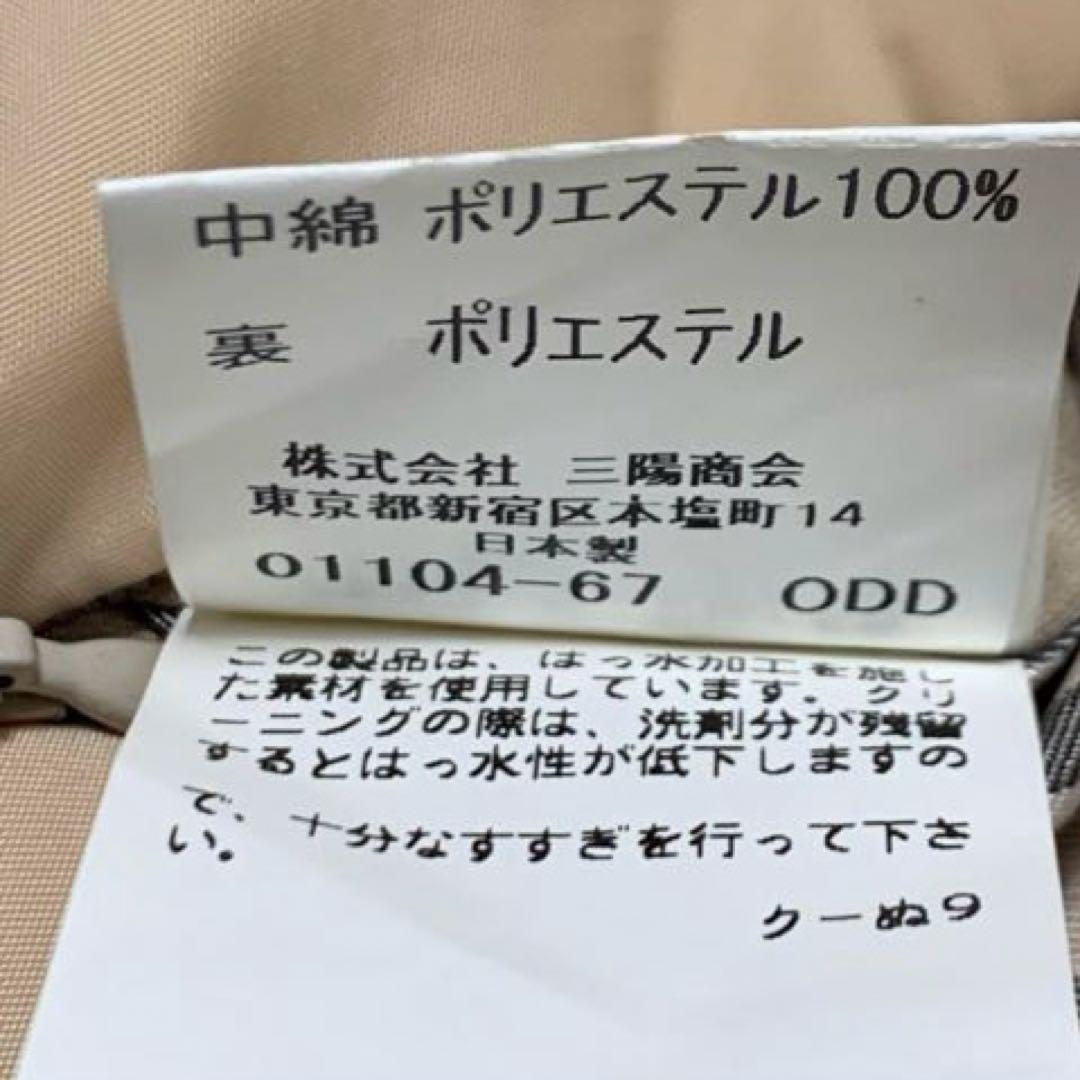 中綿 ポリエステル100%
裏 ポリエステル
株式会社 三陽商会
東京都新宿区本塩町14
日本製
01104-67 ODD
この製品は、はっ水加工を施し
た素材を使用しています。クリ
ーニングの際は、洗剤分が残留
するとはっ水性が低下しますの
で、十分なすすぎを行って下さ
い。
クーぬ9